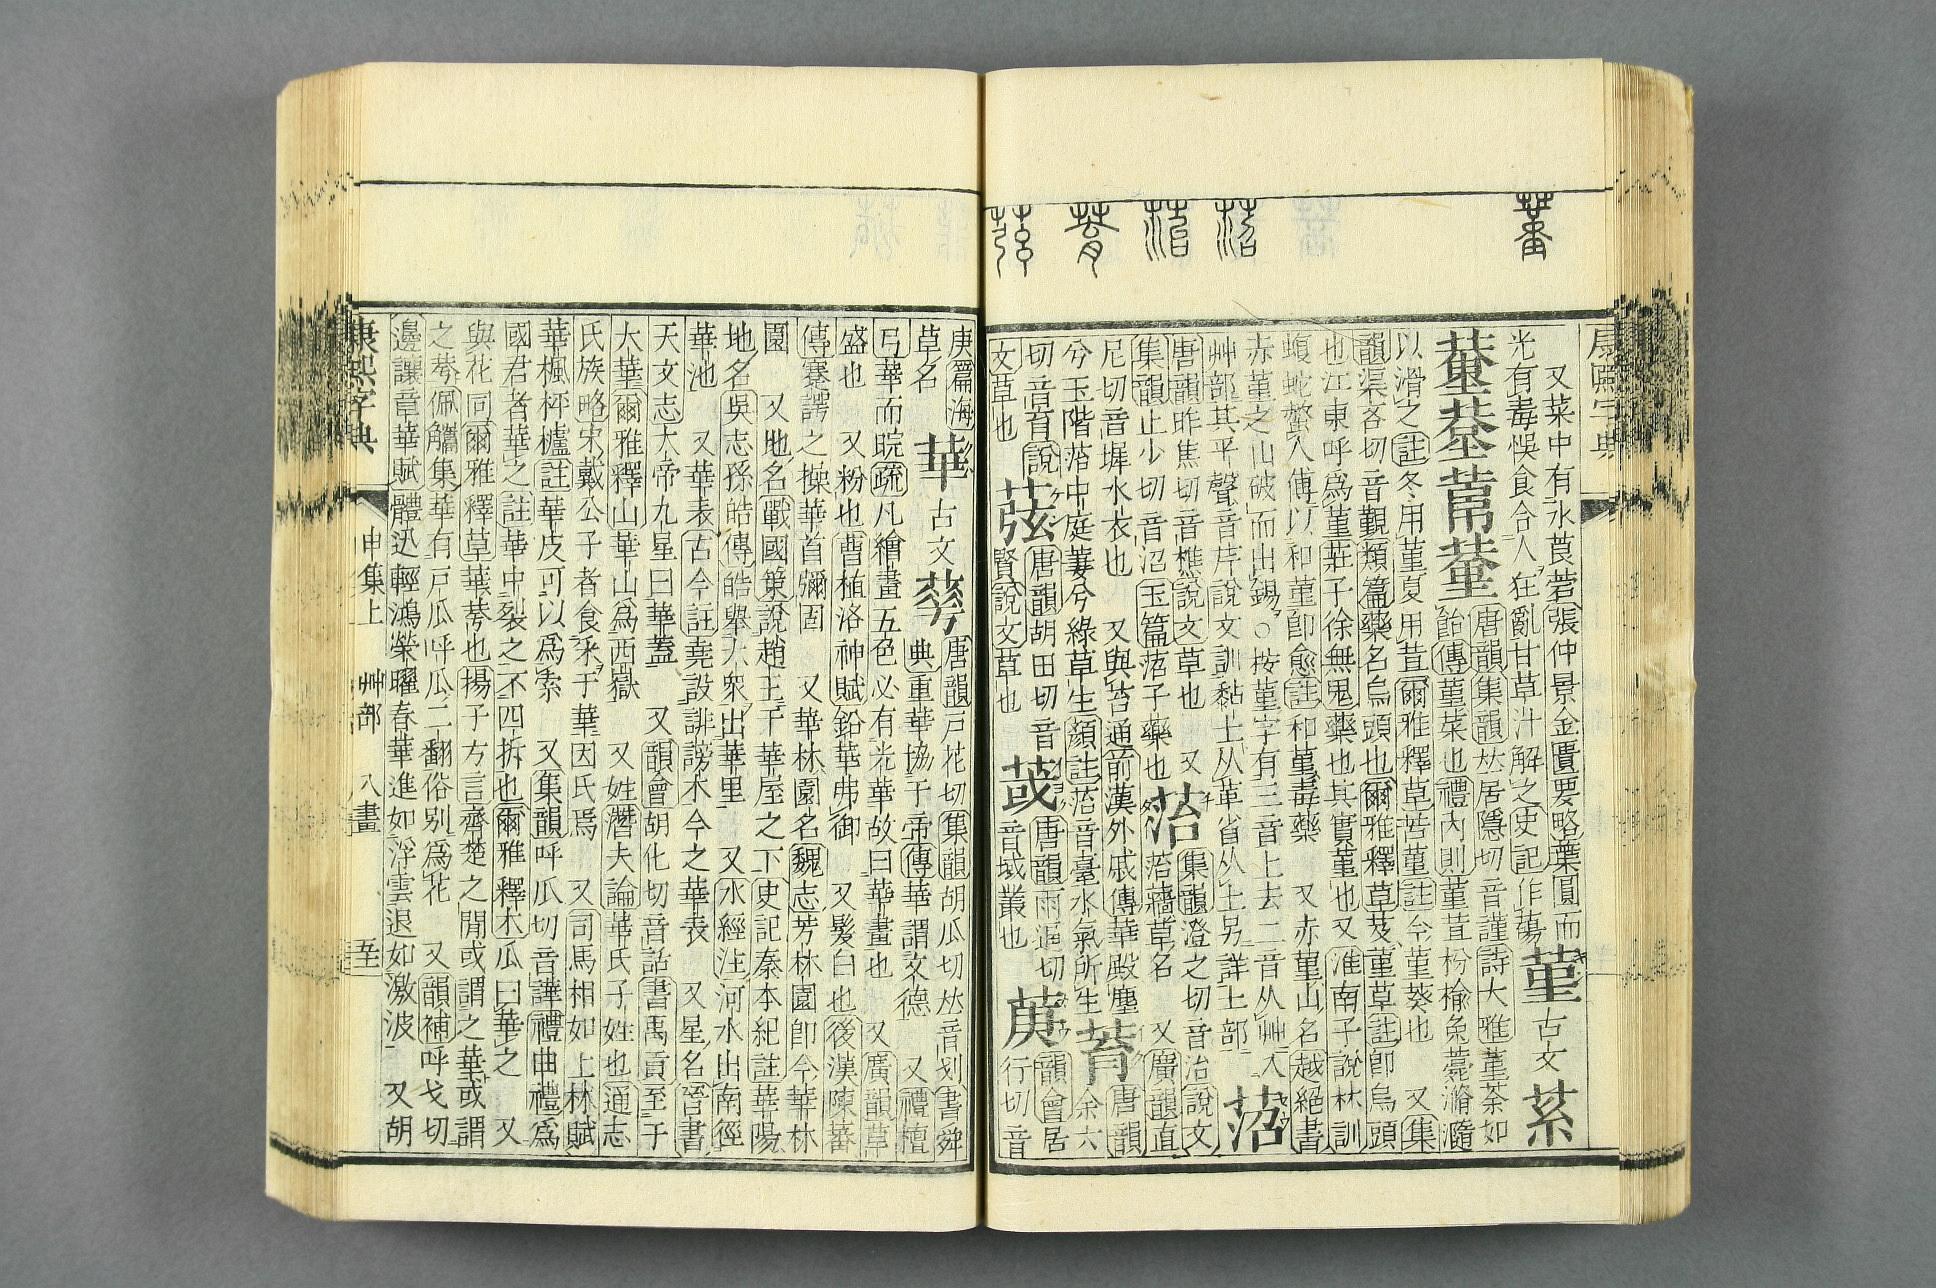 康熙字典
又菜中有水莨菪張仲景金匱要略葉圓而
光有毒悞食合人狂亂甘草汁解之史記作蕩
菫 古文
唐韻集韻𠀤居隱切音謹詩大雅菫荼如
飴傳菫菜也禮內則菫荁枌榆免薧滫瀡
以滑之註冬用菫夏用荁爾雅釋草苦菫註今菫葵也 又集
韻渠吝切音覲類篇藥名烏頭也爾雅釋草芨菫草註卽烏頭
也江東呼爲菫莊子徐無鬼藥也其實菫也又淮南子說林訓
蝮蛇螫人傅以和菫卽愈註和菫毒藥 又赤菫山名越絕書
赤菫之山破而出錫○按菫字有三音上去二音从艸入
艸部其平聲音芹說文訓黏土从革省从土另詳土部
菬
唐韻昨焦切音樵說文草也 又
集韻止少切音沼玉篇菬子藥也
菭
集韻澄之切音治說文
菭蘠草名 又廣韻直
尼切音墀水衣也 又與苔通前漢外戚傳華殿塵
兮玉階菭中庭萋兮綠草生顏註菭音臺水氣所生
唐韻余六
切音育說文草也
唐韻胡田切音賢說文草也
唐韻雨逼切音域叢也
韻會居行切音
庚篇海草名
華 古文
唐韻戸花切集韻胡瓜切𠀤音划書舜
典重華協于帝傳華謂文德 又禮檀
弓華而睆疏凡繪畫五色必有光華故曰華畫也 又廣韻草
盛也 又粉也曹植洛神賦鉛華弗御 又髮白也後漢陳蕃
傳蹇諤之操華首彌固 又華林園名魏志芳林園卽今華林
園 又地名戰國策說趙王于華屋之下史記秦本紀註華陽
地名吳志孫皓傳皓舉大衆出華里 又水經注河水出南徑
華池 又華表古今註堯設誹謗木今之華表 又星名晉書
天文志大帝九星曰華蓋 又韻會胡化切音話書禹貢至于
太華爾雅釋山華山爲西嶽 又姓潛夫論華氏子姓也通志
氏族略宋戴公子者食采于華因氏焉 又司馬相如上林賦
華楓枰櫨註華皮可以爲索 又集韻呼瓜切音譁禮曲禮爲
國君者華之註華中裂之不四拆也爾雅釋木瓜曰華之 又
與花同爾雅釋草華荂也揚子方言齊楚之閒或謂之華或謂
之荂佩觿集華有戸瓜呼瓜二翻俗別爲花 又韻補呼戈切
邊讓章華賦體迅輕鴻榮曜春華進如浮雲退如激波 又胡
康熙字典 申集上 艸部 八畫